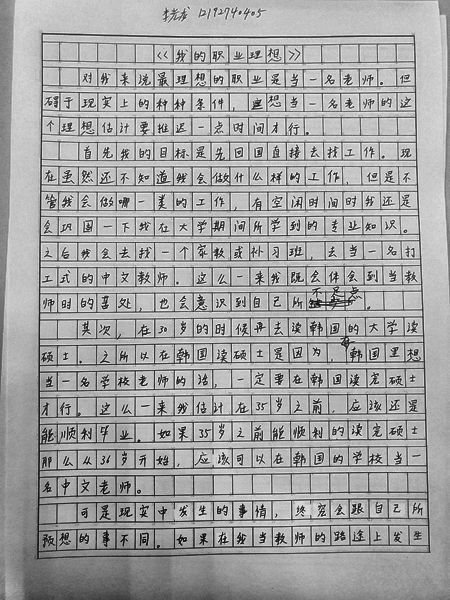 12192740405
《我的职业理想》
对我来说最理想的职业是当一名老师。但
碍于现实上的种种条件，想当一名老师的这
个理想估计要推迟一点时间才行。
首先我的目标是先回国直接去找工作。现
在虽然还不知道我会做什么样的工作，但是不
管我会做哪一类的工作，有空闲时间时我还是
会巩固一下我在大学期间所学到的专业知识。
之后我会去找一个家教或补习班，去当一名打
工式的中文教师。这么一来我既会体会到当教
师时的苦处，也会意识到自己所不足点。
其次，在30岁的时候再去读韩国的大学读
硕士。之所以在韩国读硕士是因为，在韩国里想
当一名学校老师的话，一定要在韩国读完硕士
才行。这么一来我估计在35岁之前，应该还是
能顺利毕业。如果35岁之前能顺利的读完硕士
那么从36岁开始，应该可以在韩国的学校当一
名中文老师。
可是现实中发生的事情，终究会跟自己所
预想的事不同。如果在我当教师的路途上发生